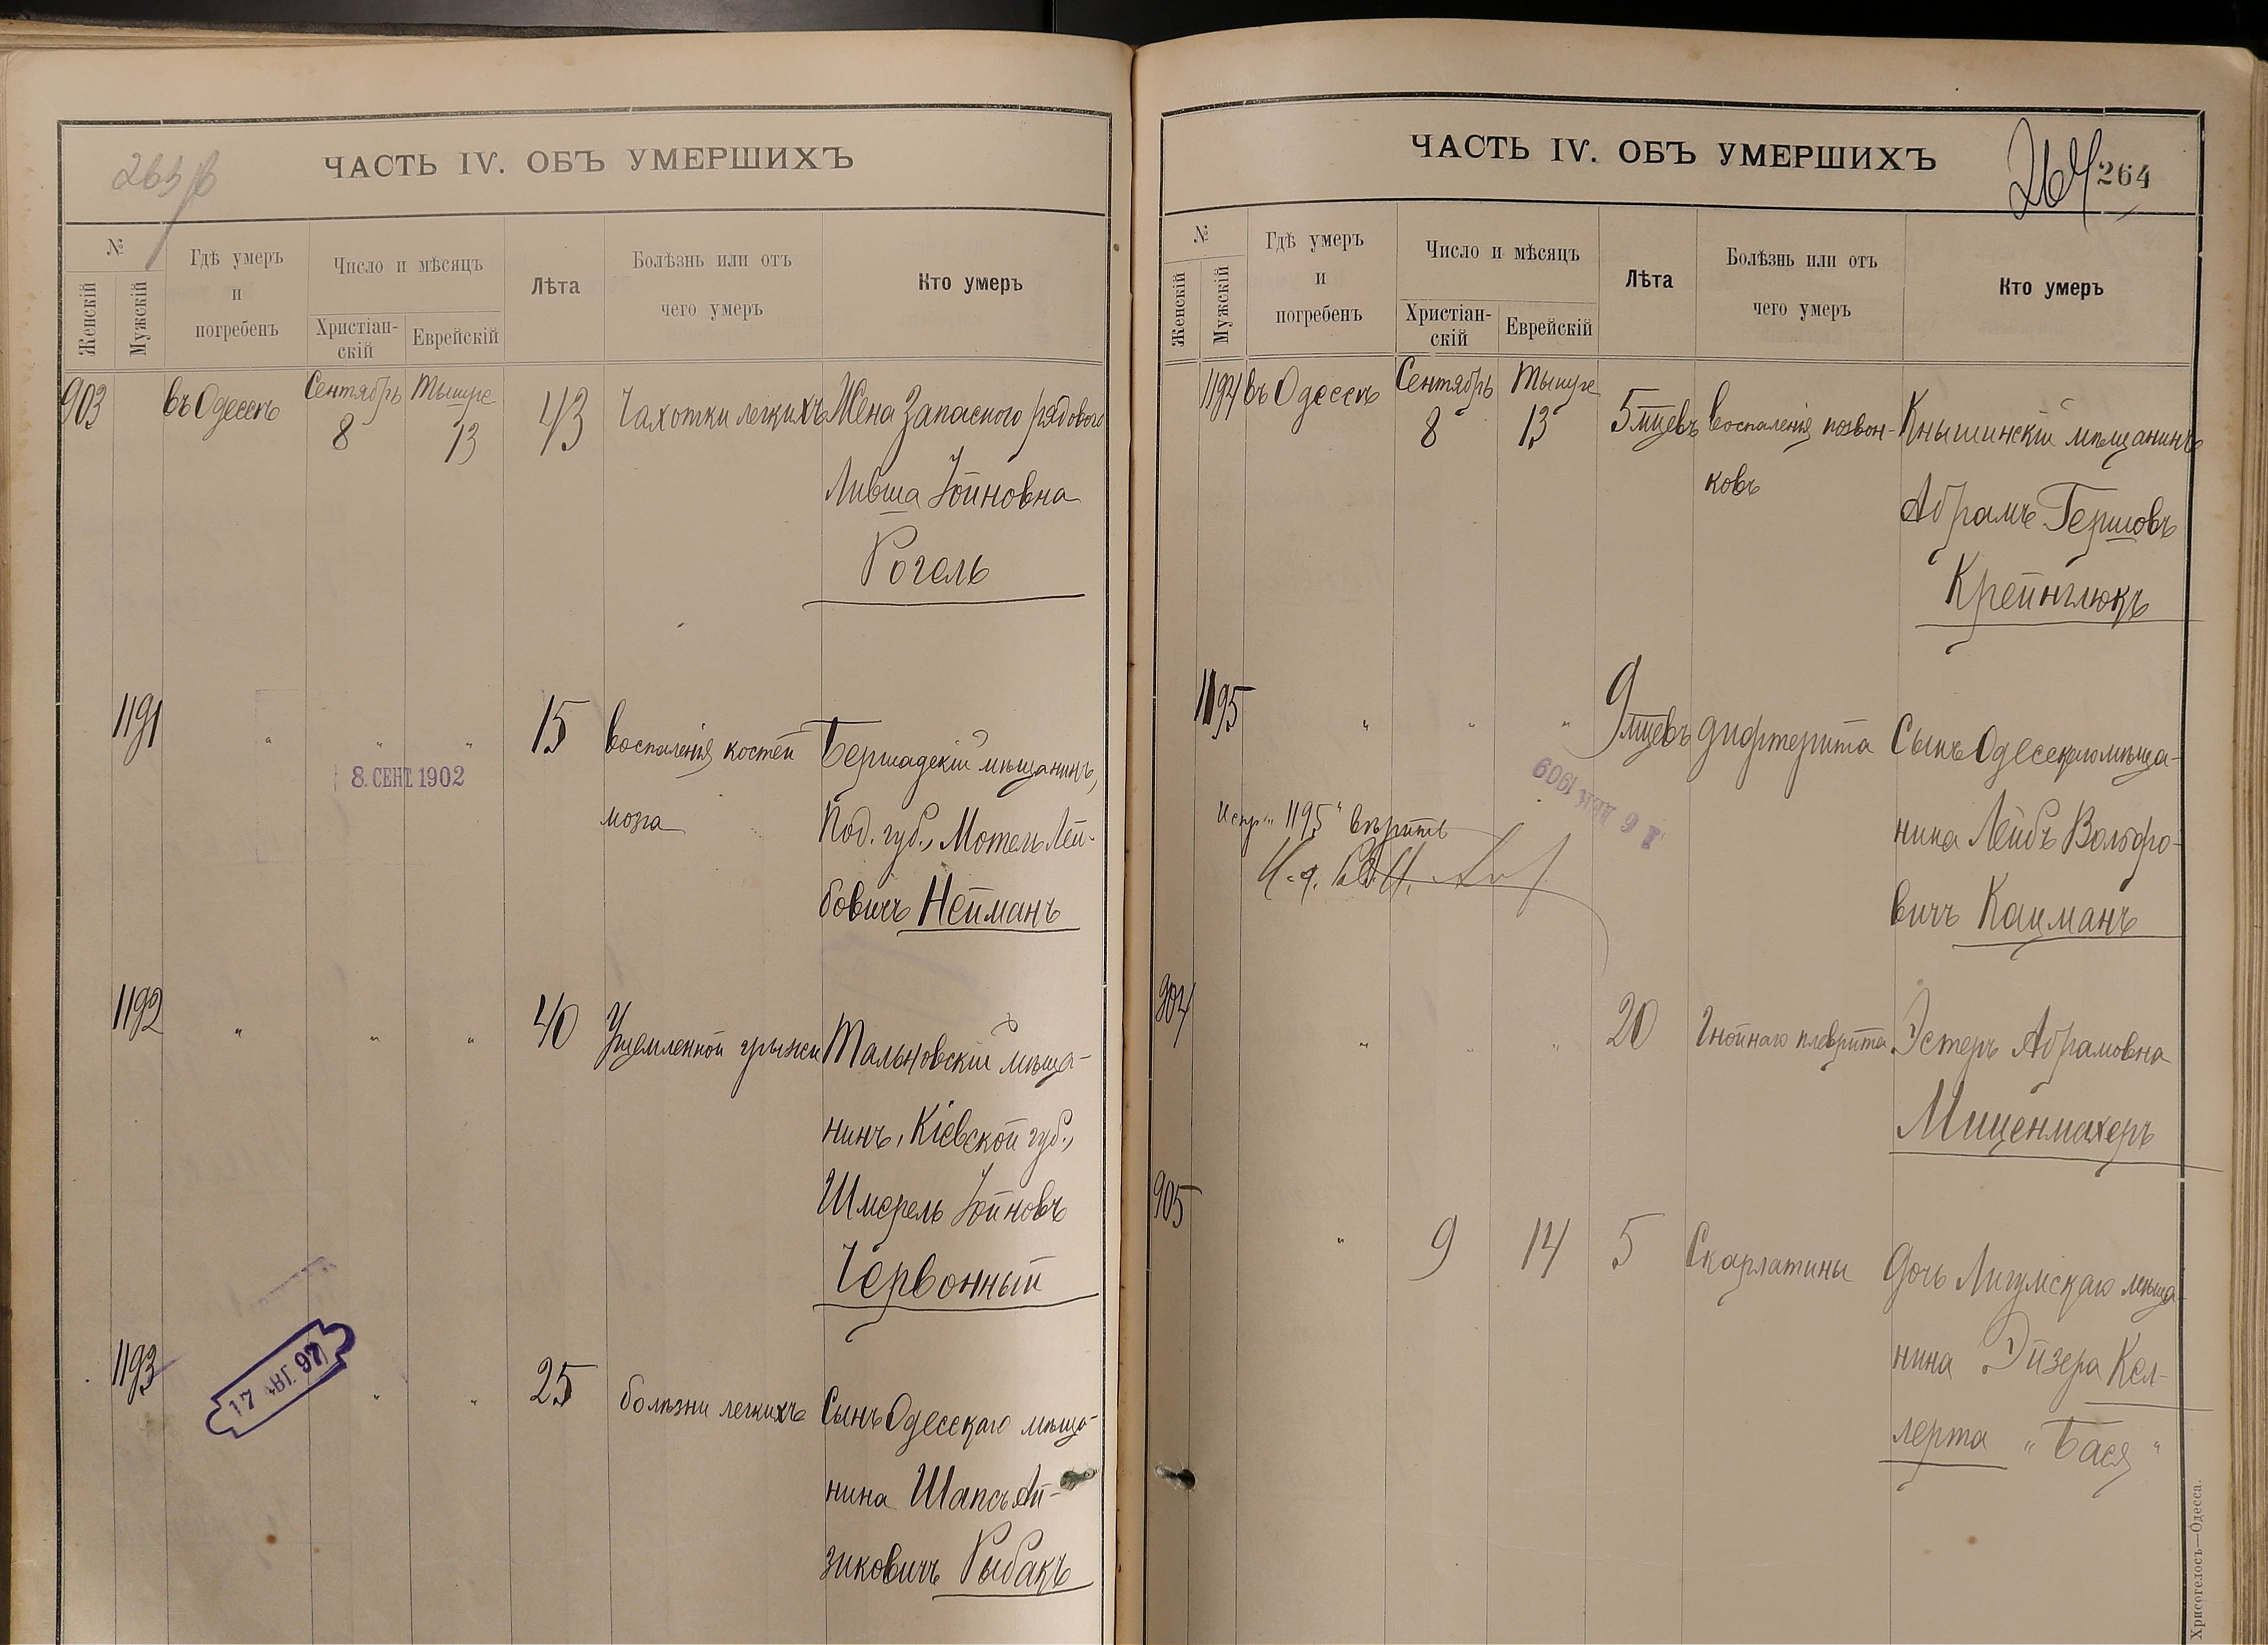 263 об
ЧАСТЬ IV. ОБЪ УМЕРШИХЪ
№
Женскій
Мужскій
Гдѣ умеръ
и
погребенъ
Число и мѣсяцъ
Христіан-
скій
Еврейскій
Лѣта
Болѣзнь или отъ
чего умеръ
Кто умеръ
903 въ Одессѣ Сентябрь 8 Тышре 13 43 Чахотки легкихъ Жена Запасного рядового
Ливша Іойновна
Рогель
1191 " " " 15 воспаленія костей Бершадскій мѣщанинъ,
8. СЕНТ. 1902
мозга Под. губ., Мотель Лей-
бовичъ Нейманъ
1192 " " " 40 Ущемленной грыжи Тальновскій мѣща-
нинъ, Кіевской губ.,
Шмерель Іойновъ
Червонный
1193 " " 25 болѣзни легкихъ Сынъ Одесскаго мѣща-
17 АВГ. 97
нина Шапсъ Ай-
зиковичъ Рыбакъ
ЧАСТЬ IV. ОБЪ УМЕРШИХЪ
264 264
№
Женскій
Мужскій
Гдѣ умеръ
и
погребенъ
Число и мѣсяцъ
Христіан-
скій
Еврейскій
Лѣта
Болѣзнь или отъ
чего умеръ
Кто умеръ
1194 въ Одессѣ Сентябрь 8 Тышре 13 5 мцевъ воспаленія позвон- Кнышинскій мѣщанинъ
ковъ Абрамъ Гершовъ
Крейнглюкъ
1195 " " " 9 мцевъ дифтерита Сынъ Одесскаго мѣща-
1909
Испр. "1195" вѣрить нина Лейбъ Вольфо-
И. д.
вичъ Кацманъ
904 " " " 20 Гнойнаго плеврита Эстеръ Абрамовна
Миценмахеръ
905 " 9 14 5 Скарлатины дочь Лигумскаго мѣща-
нина Эйзера Кел-
лерта "Бася"
Хрисогелосъ—Одесса.